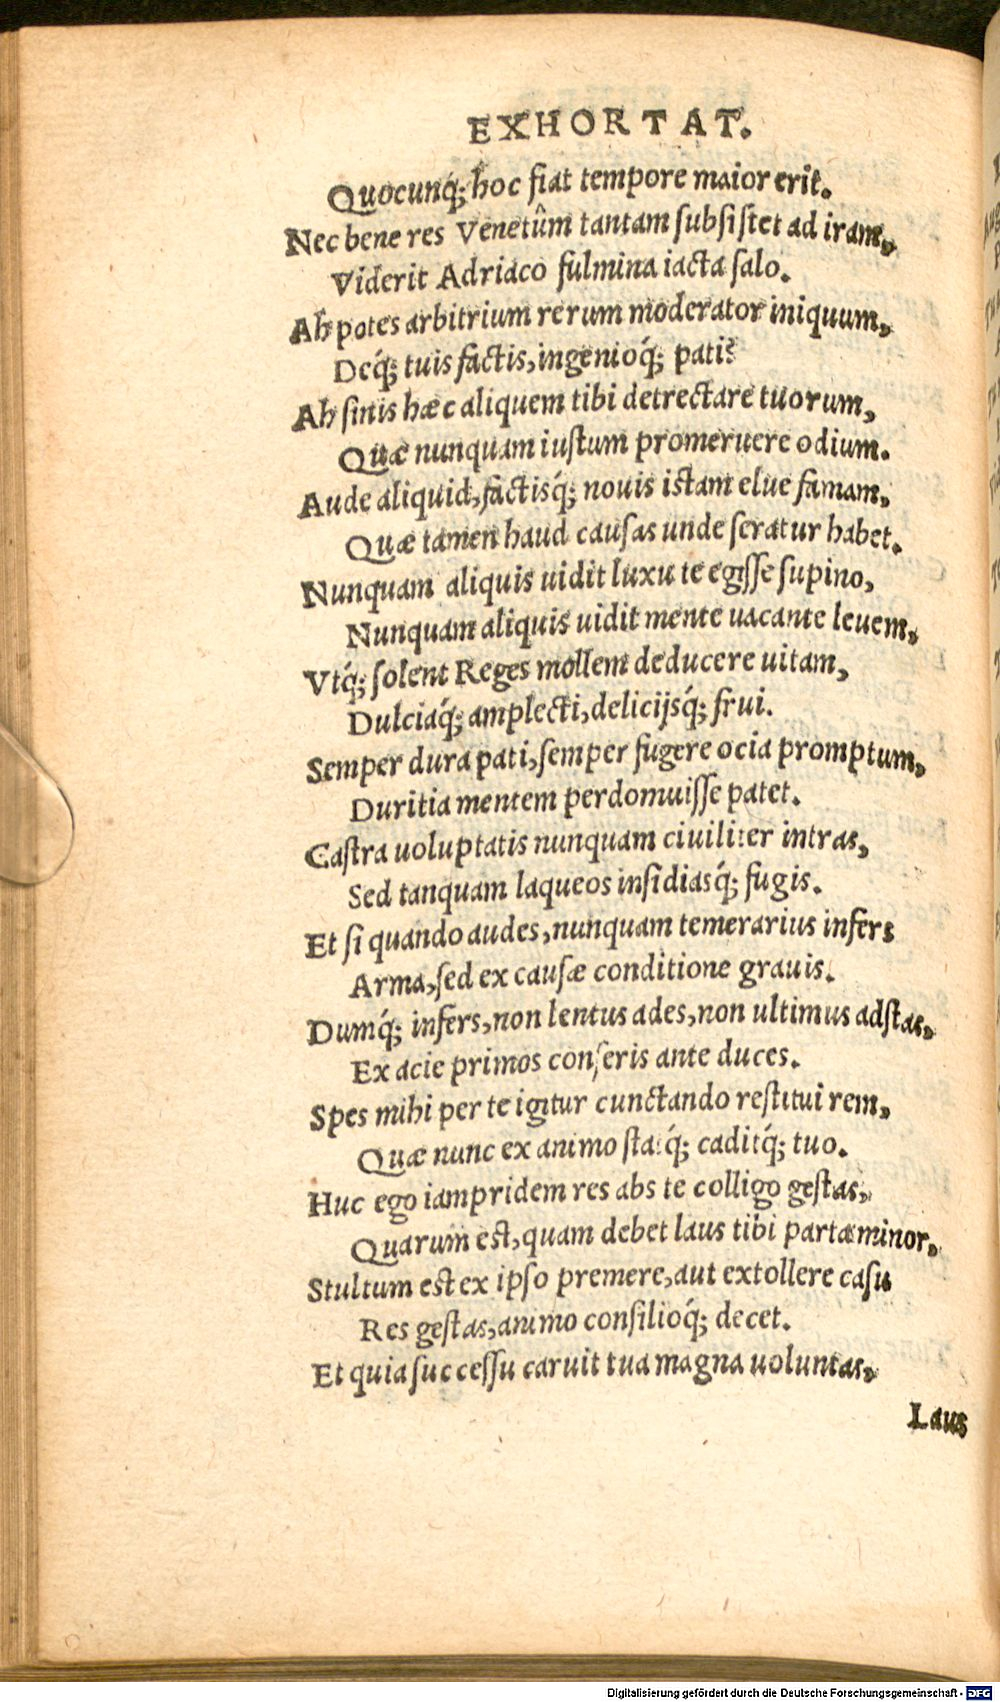 EXHORTAT.
Quocunq́; hoc fiat tempore maior erit.
Nec bene res Venetûm tantam subsistet ad iram,
Viderit Adriaco fulmina iacta salo.
Ah potes arbitrium rerum moderator iniquum,
Deq́; tuis factis, ingenioq́; pati?
Ah sinis hæc aliquem tibi detrectare tuorum,
Quæ nunquam iustum promeruere odium.
Aude aliquid, factisq́; nouis istam elue famam,
Quæ tamen haud causas unde seratur habet.
Nunquam aliquis uidit luxu te egisse supino,
Nunquam aliquis uidit mente uacante leuem,
Vtq́; solent Reges mollem deducere uitam,
Dulciaq́; amplecti, delicijsq́; frui.
Semper dura pati, semper fugere ocia promptum,
Duritia mentem perdomuisse patet.
Castra uoluptatis nunquam ciuiliter intras,
Sed tanquam laqueos insidiasq́; fugis.
Et si quando audes, nunquam temerarius infers
Arma, sed ex causæ conditione grauis.
Dumq́; infers, non lentus ades, non ultimus adstas,
Ex acie primos conseris ante duces.
Spes mihi per te igitur cunctando restitui rem,
Quæ nunc ex animo statq́; caditq́; tuo.
Huc ego iampridem res abs te colligo gestas,
Quarum est, quam debet laus tibi parta minor,
Stultum est ex ipso premere, aut extollere casu
Res gestas, animo consilioq́; decet.
Et quia successu caruit tua magna uoluntas,
Laus
Digitalisierung gefördert durch die Deutsche Forschungsgemeinschaft - DFG